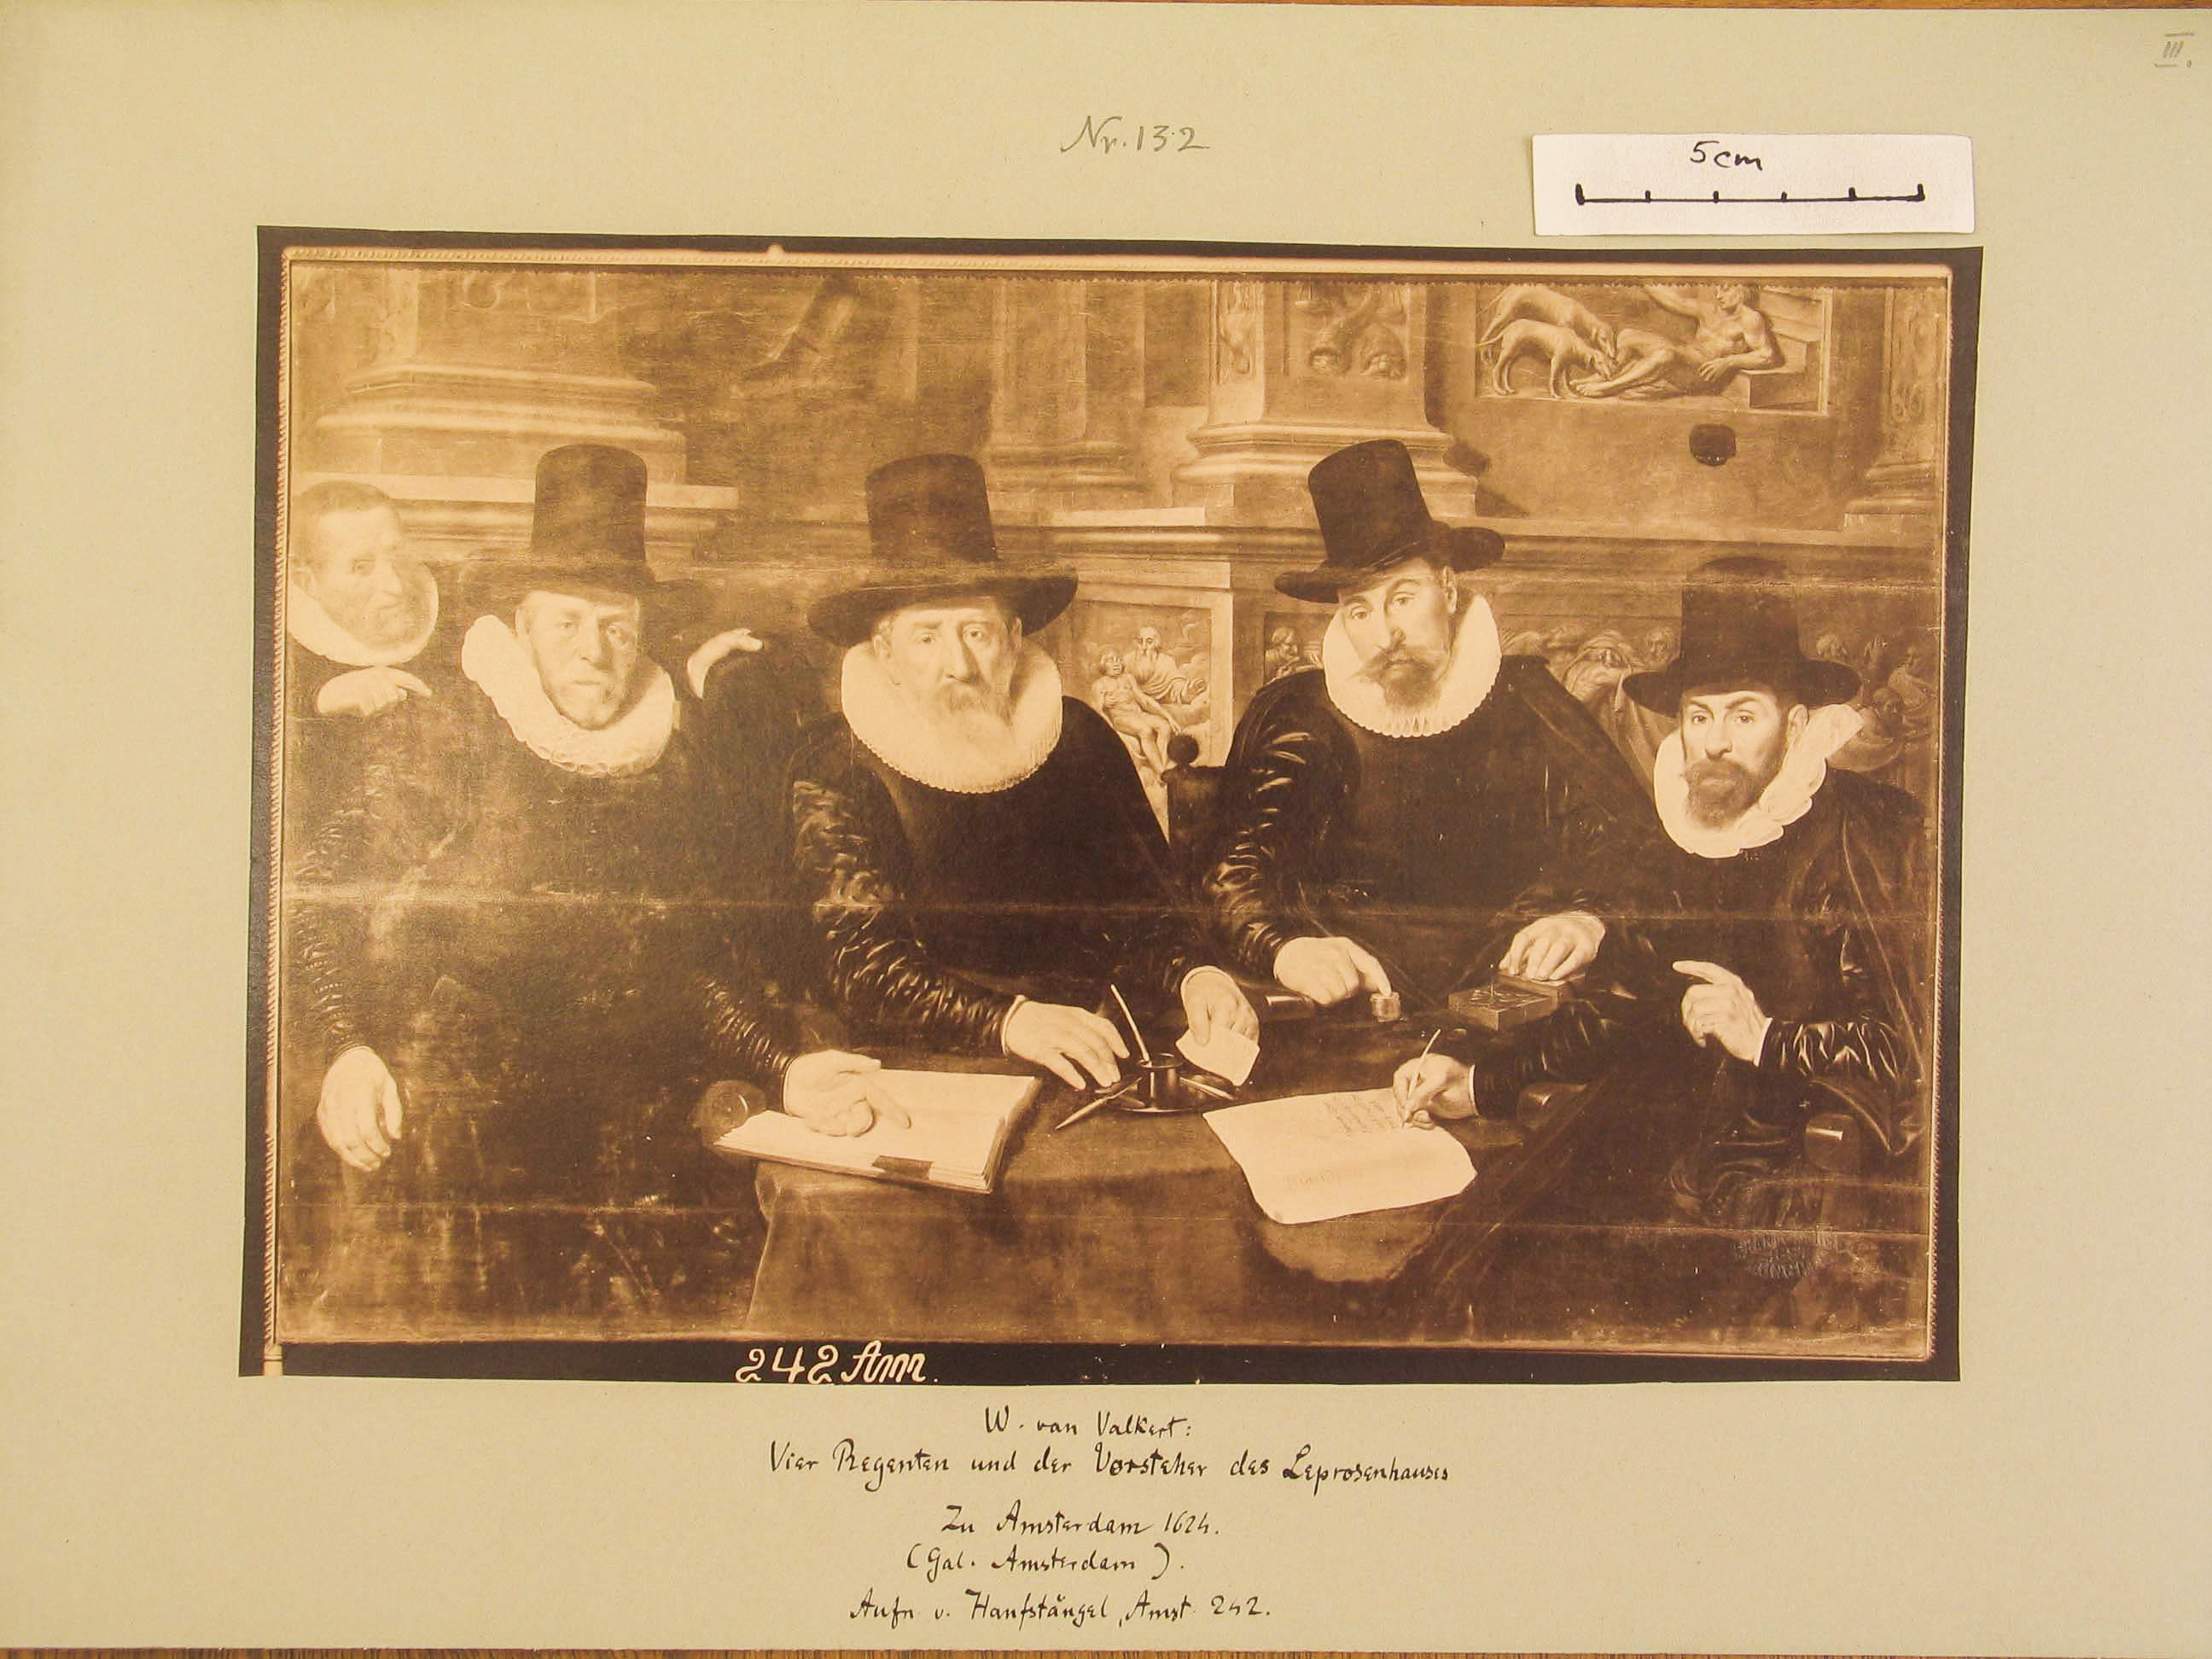 III.
Nr. 132
5cm
242 Am.
W. van Valkert:
Vier Regenten und der Vorsteher des Leprosenhauses
Zu Amsterdam 1624.
(Gal. Amsterdam).
Aufn. v. Hanfstängel, Amst. 242.